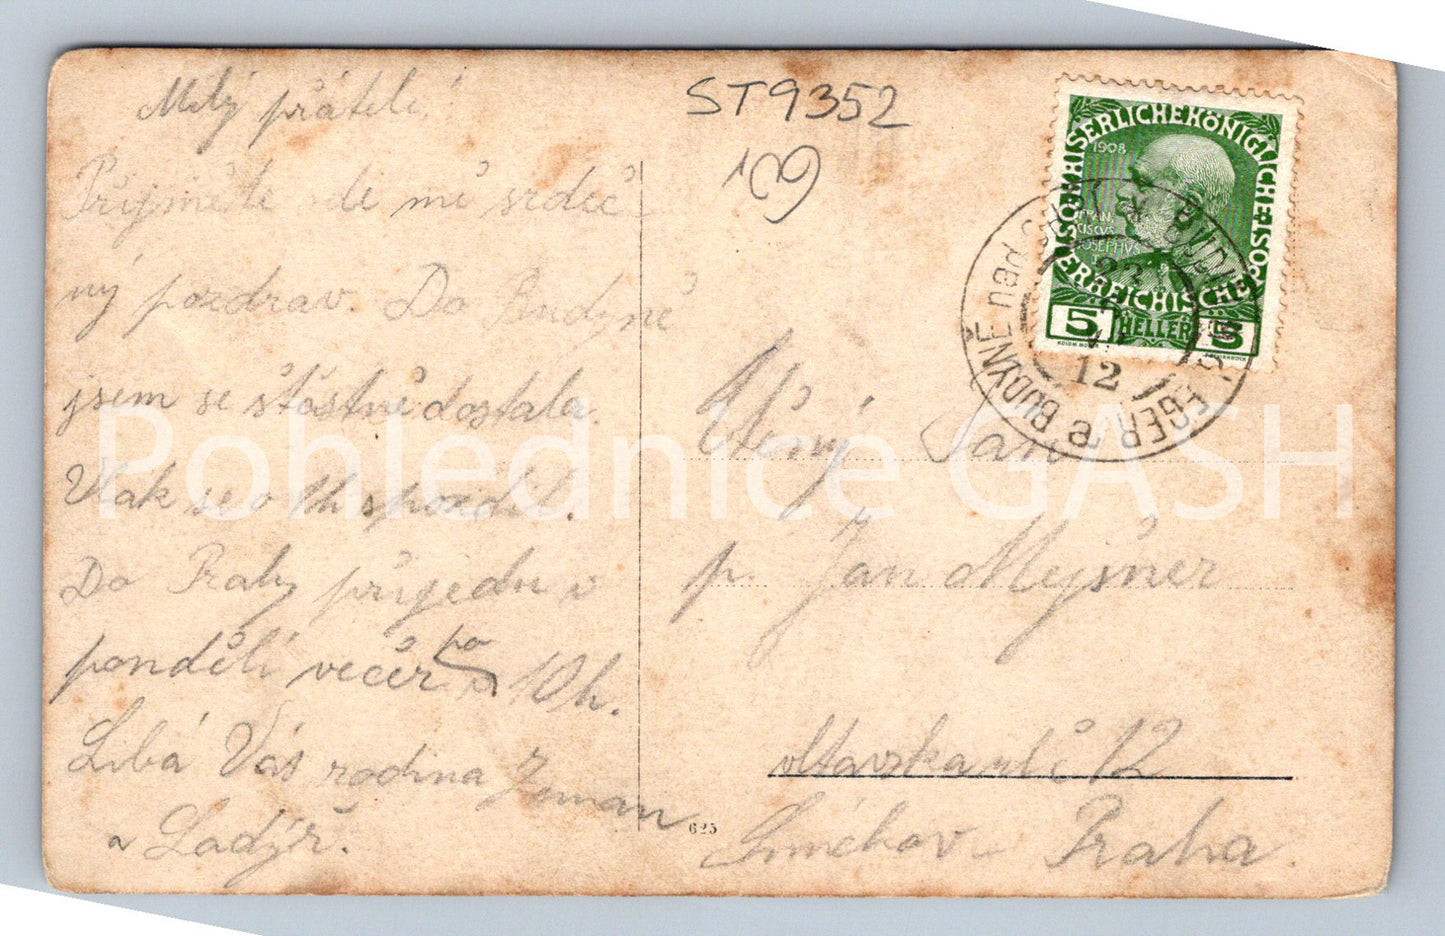 Milý přátelé!
Přijměte ode mě srdeč-
ný pozdrav. Do Budyně
jsem se šťastně dostala.
Vlak se o 1h spozdil.
Do Prahy přijedu v
pondělí večer po 10h.
Líbá Vás rodina Zeman
a Ladýř.
ST9352
109
KAISERLICHE KÖNIGLICHE
ÖSTERREICHISCHE
1908
FRAN
CISCVS
IOSEPHVS
5 HELLER 5
BUDYNĚ nad OHŘÍ
BUDIN a. d. EGER
12
Ctěný Pan
p. Jan Mejsner
Vltavská ul č 12
Smíchov - Praha.
625
Pohlednice GASH